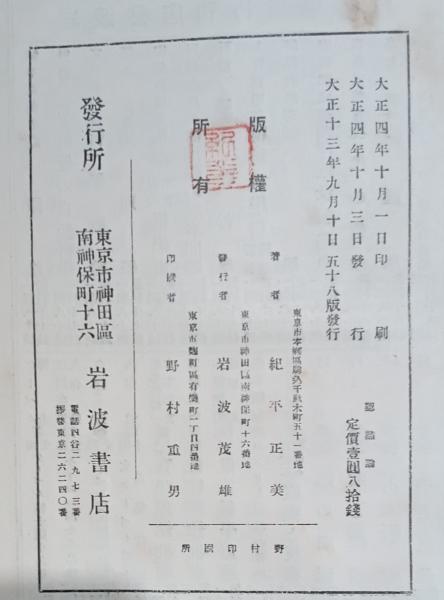 大正四年十月一日印刷
大正四年十月三日發行
大正十三年九月十日五十八版發行
認識論
定價壹圓八拾錢
版權
所有
東京市本鄕區駒込千駄木町五十一番地
著者 紀平正美
東京市神田區南神保町十六番地
發行者 岩波茂雄
東京市麴町區有樂町一丁目四番地
印刷者 野村重男
野村印刷所
發行所
東京市神田區
南神保町十六
岩波書店
電話四谷二九七三番
振替東京二六二四〇番